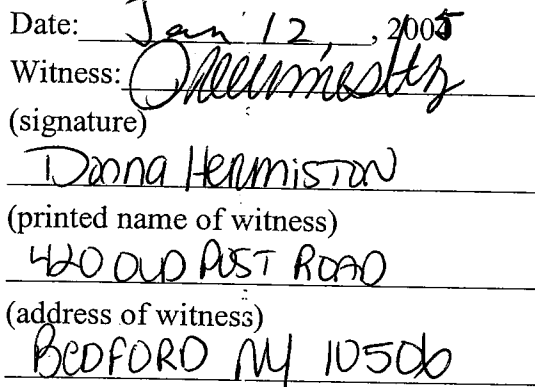 Date: Jan 12, , 2005
Witness:
(signature)
Donna Hermiston
(printed name of witness)
420 OLD POST ROAD
(address of witness)
BEDFORD NY 10506